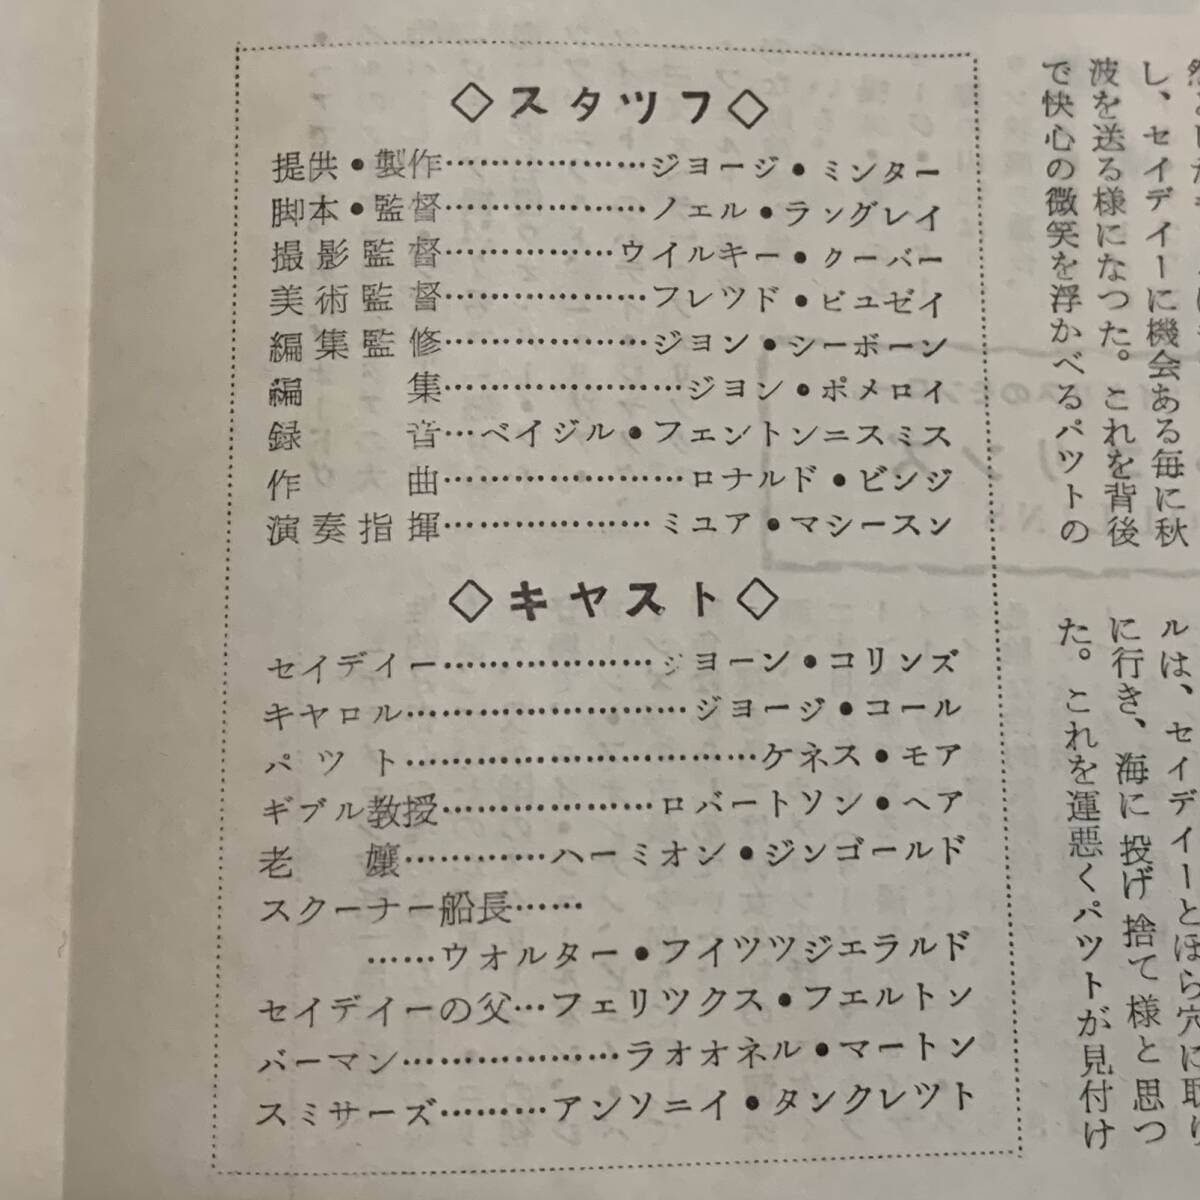 ◇スタツフ◇
提供・製作………………ジヨージ・ミンター
脚本・監督………………ノエル・ラングレイ
撮影監督……………ウイルキー・クーパー
美術監督………………フレツド・ピユゼイ
編集監修………………ジヨン・シーボーン
編集…………………ジヨン・ポメロイ
録音…ベイジル・フェントンニスミス
作曲…………………ロナルド・ビンジ
演奏指揮………………ミユア・マシースン
◇キヤスト◇
セイデイー………………ジヨーン・コリンズ
キヤロル……………………ジヨージ・コール
パツト…………………………ケネス・モア
ギブル教授………………ロバートソン・ヘア
老嬢…………ハーミオン・ジンゴールド
スクーナー船長……
……ウオルター・フイツツジエラルド
セイデイーの父…フェリツクス・フエルトン
バーマン………………ラオオネル・マートン
スミサーズ………アンソニイ・タンクレツト
し、セイデイーに機会ある毎に秋
波を送る様になつた。これを背後
で快心の微笑を浮かべるパツトの
ルは、セイデイーとほら穴に取り
に行き、海に投げ捨て様と思つ
た。これを運悪くパツトが見付け